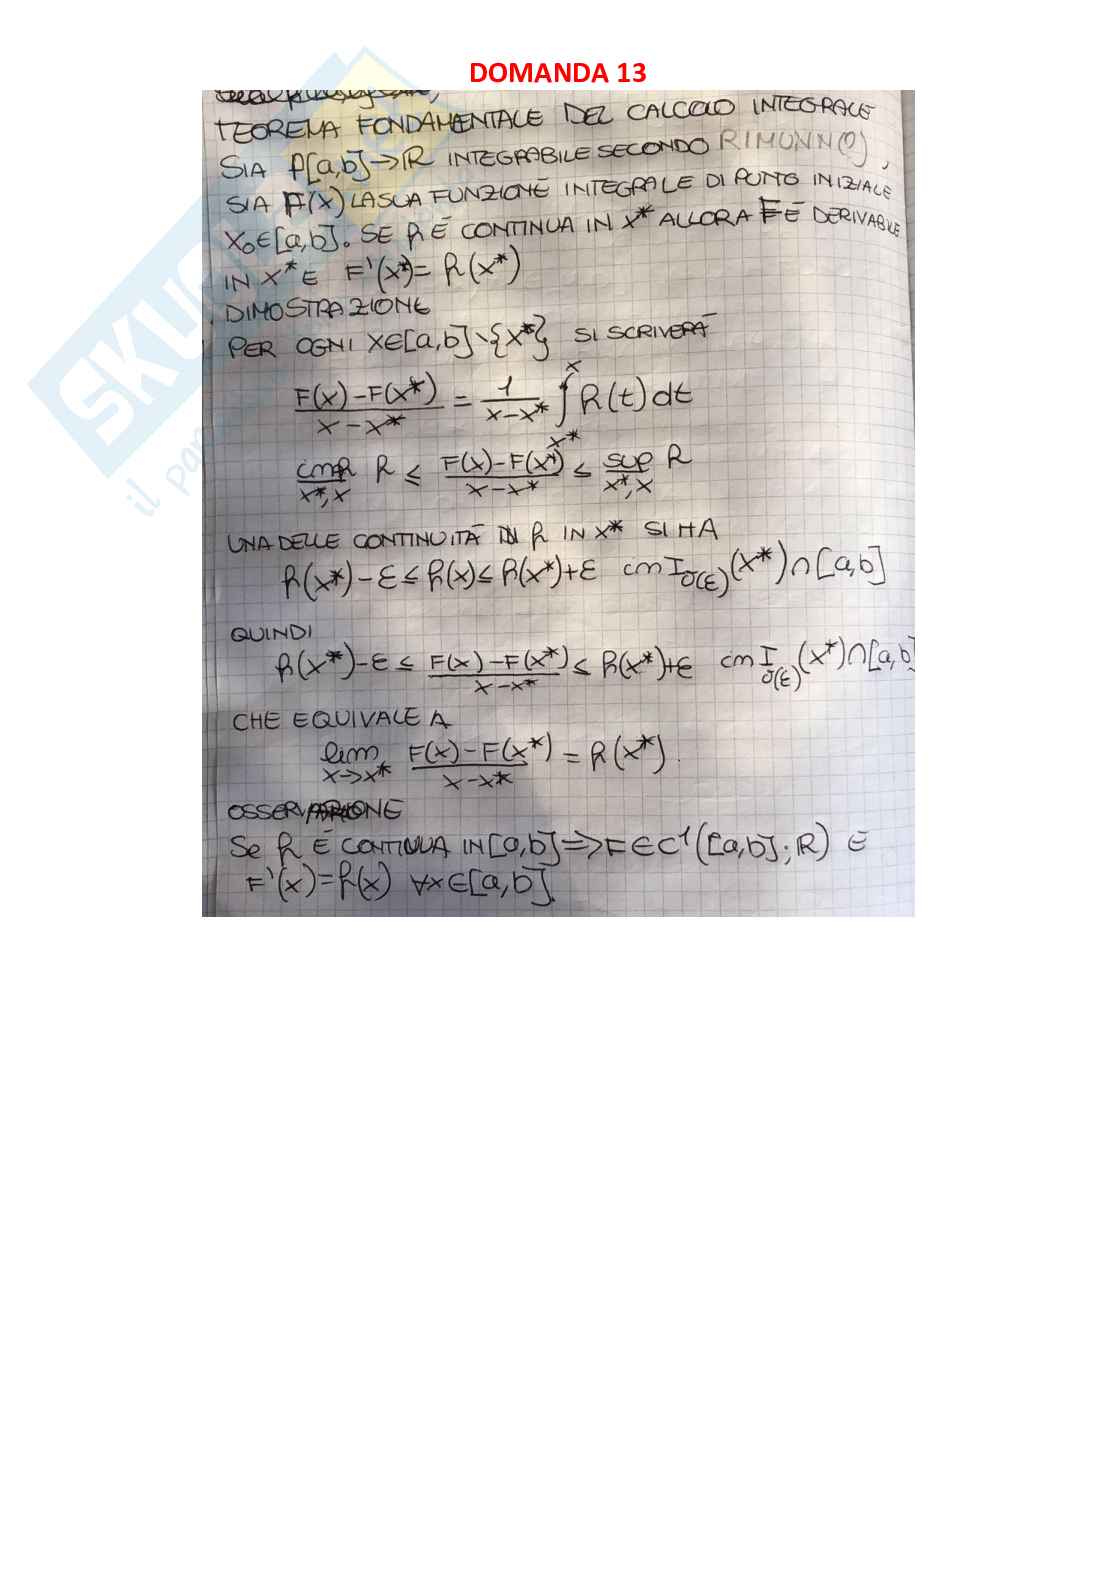 DOMANDA 13
TEOREMA FONDAMENTALE DEL CALCOLO INTEGRALE
SIA f[a,b]→ℝ INTEGRABILE SECONDO RIMUNN(?),
SIA F(x) LA SUA FUNZIONE INTEGRALE DI PUNTO INIZIALE
x₀∈[a,b]. SE f È CONTINUA IN x* ALLORA F È DERIVABILE
IN x* E F'(x*)= f(x*)
DIMOSTRAZIONE
PER OGNI x∈[a,b]∖{x*} SI SCRIVERÀ
(F(x)-F(x*))/(x-x*) = 1/(x-x*) ∫_{x*}^{x} f(t)dt
inf_{x*,x} f ≤ (F(x)-F(x*))/(x-x*) ≤ sup_{x*,x} f
UNA DELLE CONTINUITÀ DI f IN x* SI HA
f(x*)-ε ≤ f(x) ≤ f(x*)+ε in I_{δ(ε)}(x*)∩[a,b]
QUINDI
f(x*)-ε ≤ (F(x)-F(x*))/(x-x*) ≤ f(x*)+ε in I_{δ(ε)}(x*)∩[a,b]
CHE EQUIVALE A
lim_{x→x*} (F(x)-F(x*))/(x-x*) = f(x*).
OSSERVAZIONE
Se f È CONTINUA IN [a,b]⟹F∈C¹([a,b];ℝ) E
F'(x)=f(x) ∀x∈[a,b].
SKUOLA
il pa